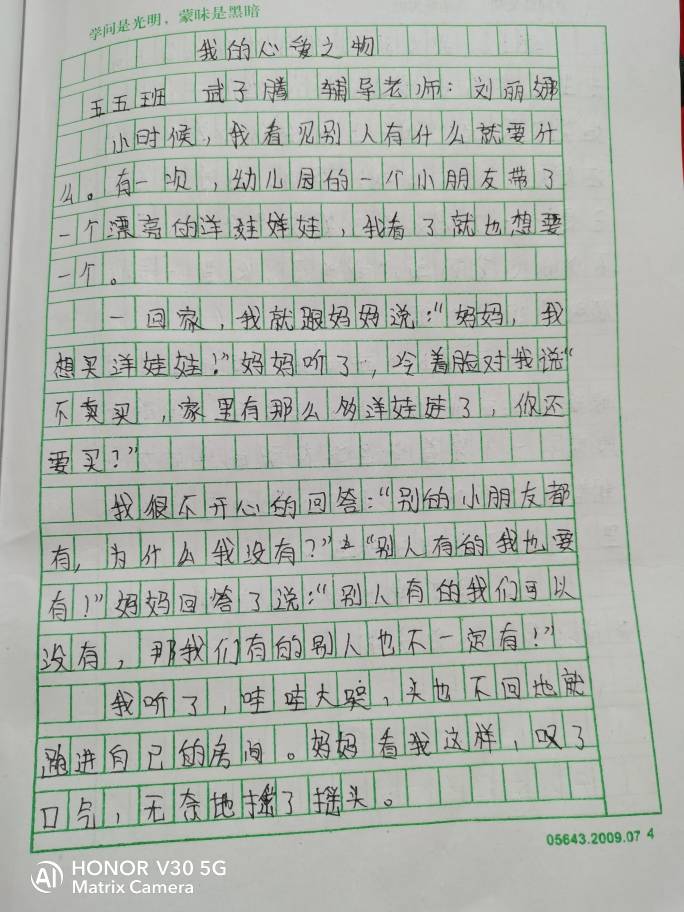 学问是光明，蒙昧是黑暗
我的心爱之物
五五班 武子腾 辅导老师：刘丽娜
小时候，我看见别人有什么就要什
么。有一次，幼儿园的一个小朋友带了
一个漂亮的洋娃娃娃，我看了就也想要
一个。
一回家，我就跟妈妈说：“妈妈，我
想买洋娃娃！”妈妈听了，冷着脸对我说“
不卖买，家里有那么多洋娃娃了，你还
要买？”
我很不开心的回答：“别的小朋友都
有，为什么我没有？”“别人有的我也要
有！”妈妈回答了说：“别人有的我们可以
没有，那我们有的别人也不一定有！”
我听了，哇哇大哭，头也不回地就
跑进自己的房间。妈妈看我这样，叹了
口气，无奈地摇了摇头。
05643.2009.07 4
HONOR V30 5G
Matrix Camera